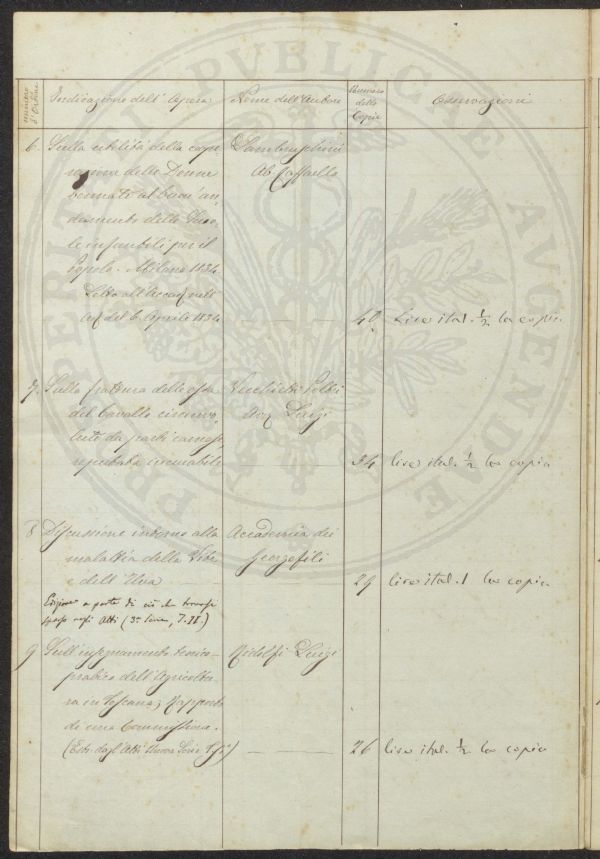 numero d'Ordine
Indicazione dell'Opera
Nome dell'Autore
Numero
delle
Copie
Osservazioni
6. Sulla utilità della
delle Donne
al buon an,,
damento delle Scuo,,
le infantili per il
Popolo. Milano 1834
Letto all'Accad.
del 6 Aprile 1834
Lambruschini
Ab. Raffaello
40 Lire ital. ½ la copia
7. Sulla frattura delle ossa
del Cavallo
da parti carnose
reputata incurabile
Luigi
34 lire ital. ½ la copia
8 Discussione intorno alla
malattia della Vite
e dell'Uva
Edizione a parte di ciò che trovasi
sparso negli Atti (3a Serie, T. II)
Accademia dei
Georgofili
29 lire ital. 1 la copia
9 Sull'insegnamento teorico-
pratico dell'Agricoltu-
ra in Toscana; Rapporto
di una Commissione.
(Estr. dagli Atti Nuova Serie
Ridolfi Luigi
26 lire ital. ½ la copia